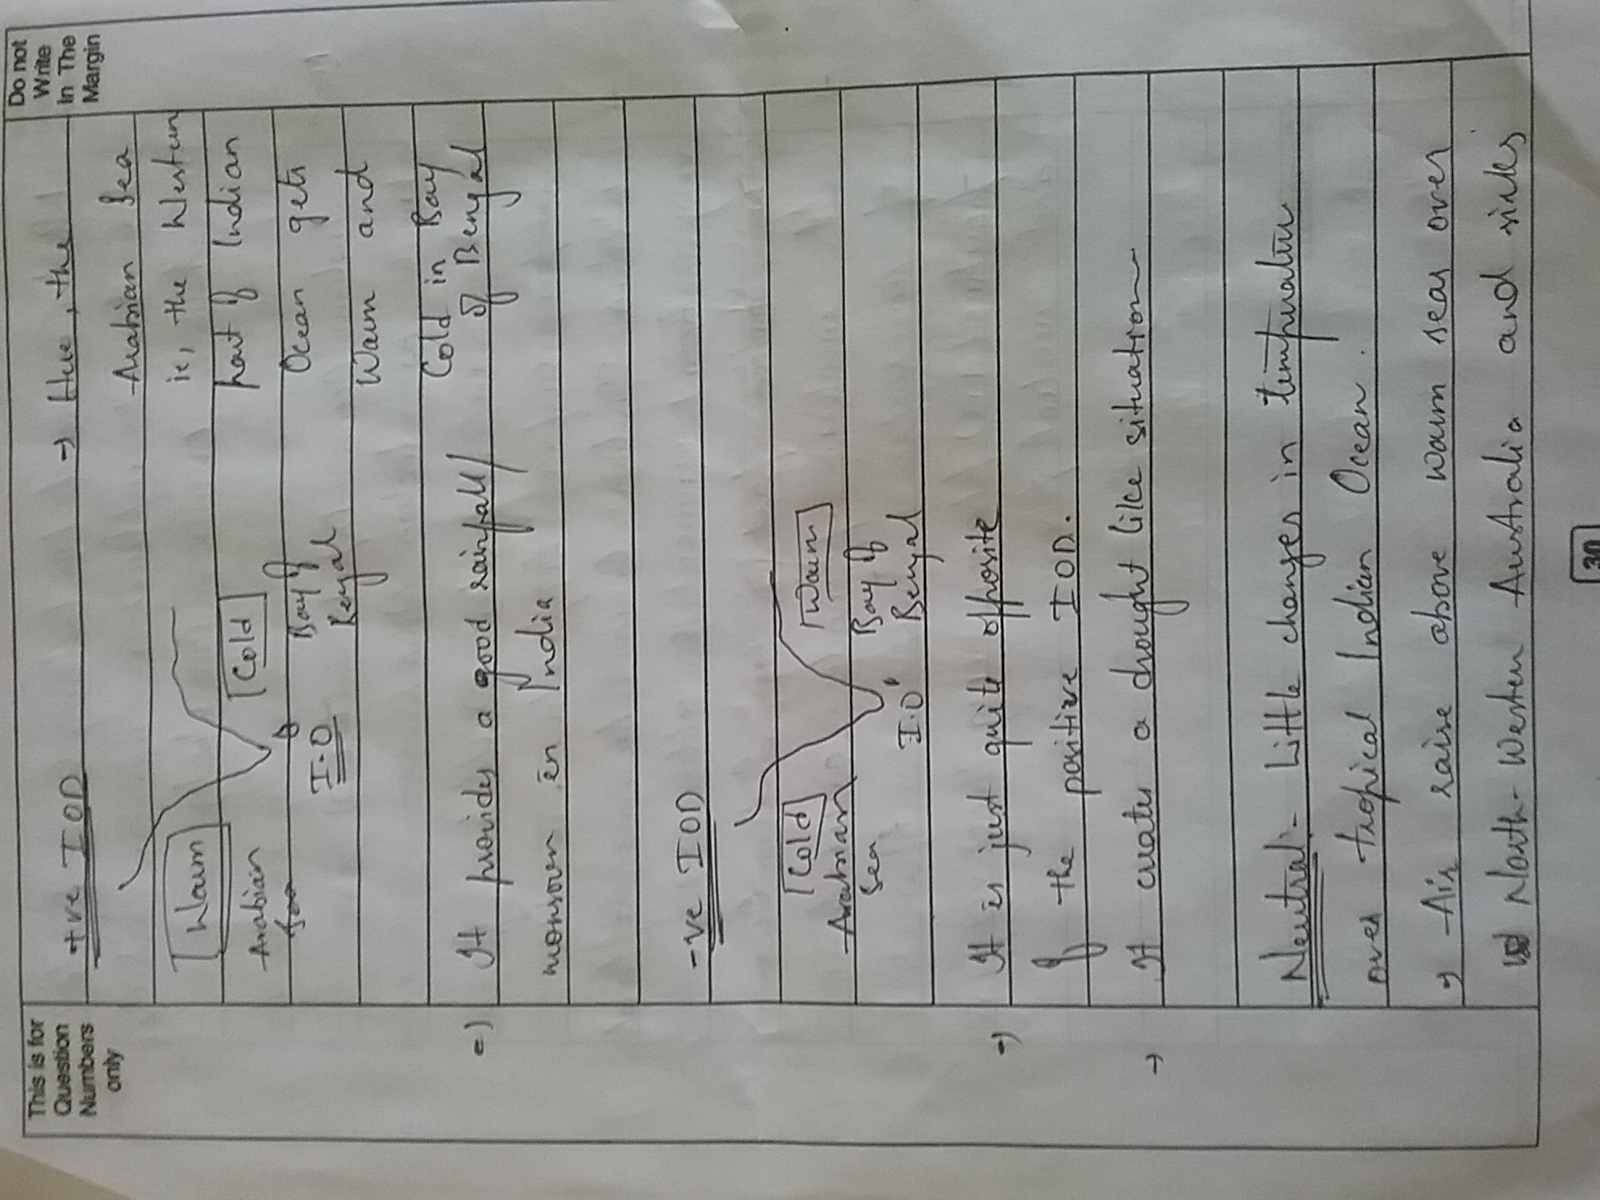 This is for
Question
Numbers
only
Do not
Write
In The
Margin
+ve IOD
→ Here, the
Arabian Sea
ie, the Western
part of Indian
Ocean gets
Warm and
Cold in Bay
of Bengal
Warm
Cold
Arabian
Bay of
Bengal
I.O
It provides a good rainfall/
monsoon in India
-ve IOD
Cold
Warm
Arabian
Sea
Bay of
Bengal
I.O
It is just quite opposite
of the positive IOD.
→ It creates a drought like situation
Neutral:- Little changes in temperature
over tropical Indian Ocean.
→ Air raise above warm seas over
North-Western Australia and sinks
30